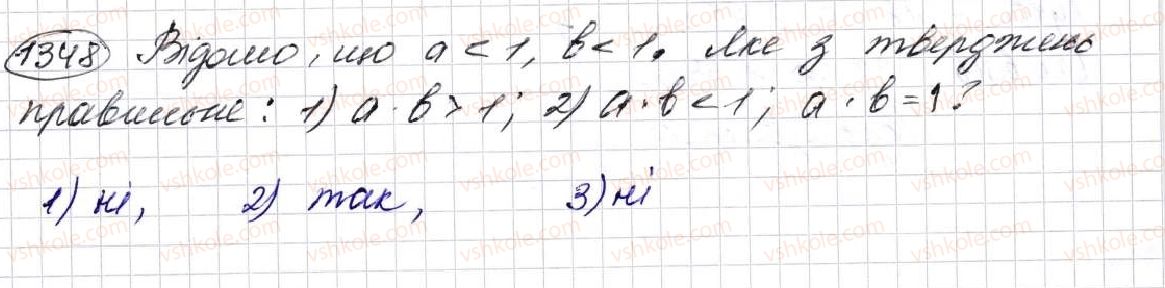 1348 Відомо, що a < 1, b < 1. Яке з тверджень
правильне: 1) a · b > 1; 2) a · b < 1; a · b = 1?
1) ні, 2) так, 3) ні